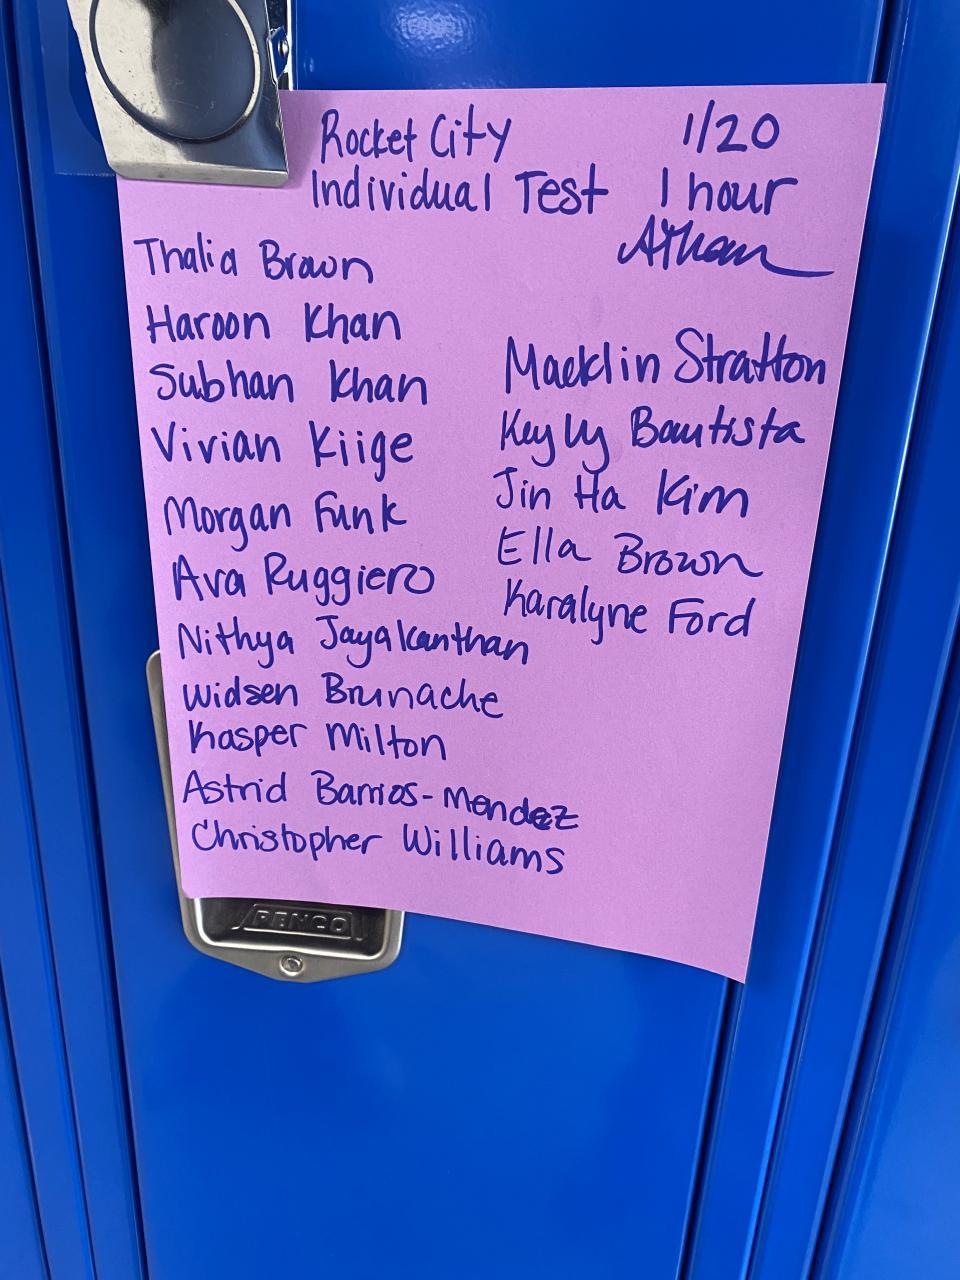 Rocket City 1/20
Individual Test 1 hour
Thalia Brown
Haroon Khan
Subhan Khan
Vivian Kiige
Morgan Funk
Ava Ruggiero
Nithya Jayakanthan
Widsen Brunache
Kasper Milton
Astrid Barrios-Mendez
Christopher Williams
Maeklin Stratton
Keyly Bautista
Jin Ha Kim
Ella Brown
Karalyne Ford
PENCO